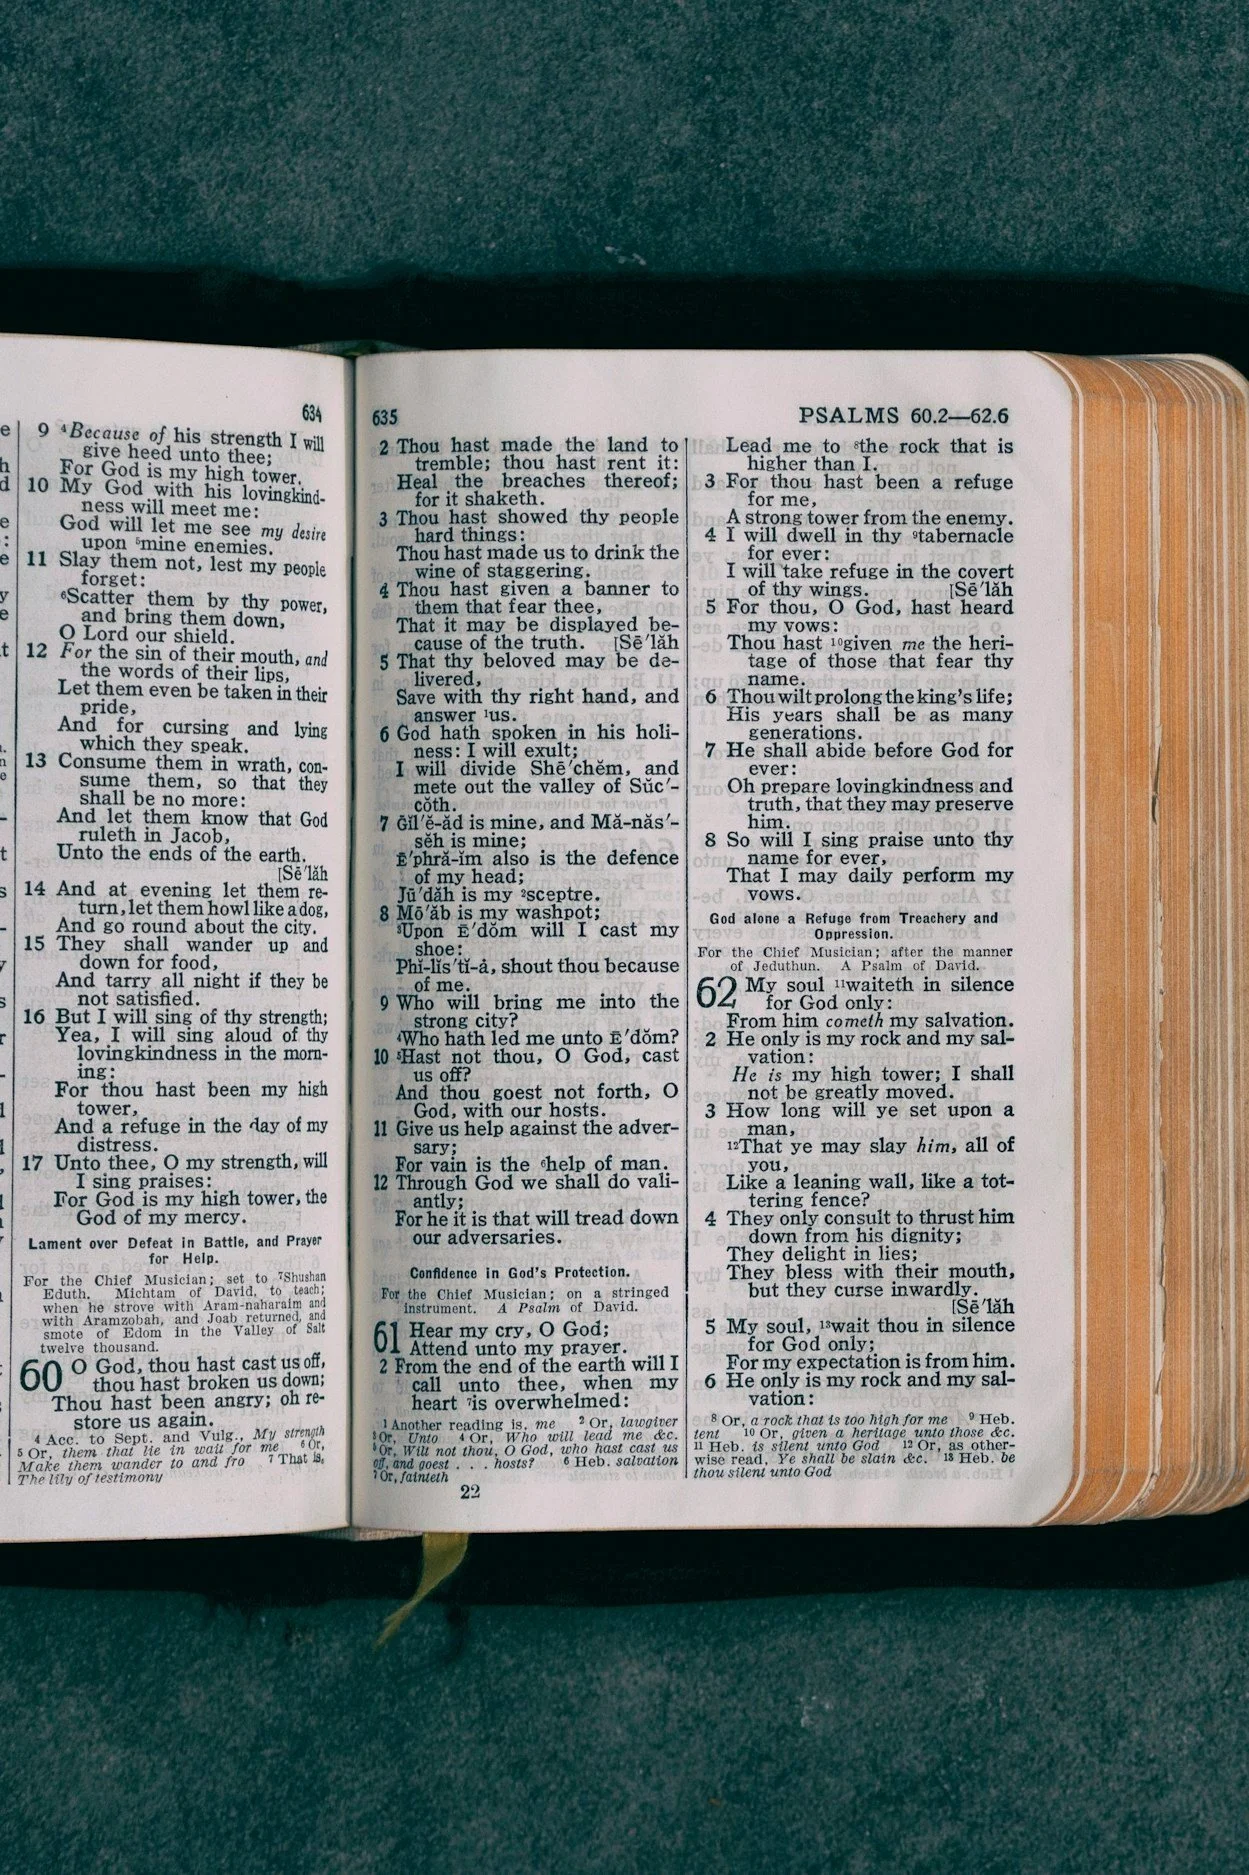 634
9 ⁴Because of his strength I will
give heed unto thee;
For God is my high tower.
10 My God with his lovingkind-
ness will meet me:
God will let me see my desire
upon ⁵mine enemies.
11 Slay them not, lest my people
forget:
⁶Scatter them by thy power,
and bring them down,
O Lord our shield.
12 For the sin of their mouth, and
the words of their lips,
Let them even be taken in their
pride,
And for cursing and lying
which they speak.
13 Consume them in wrath, con-
sume them, so that they
shall be no more:
And let them know that God
ruleth in Jacob,
Unto the ends of the earth.
[Sē′lăh
14 And at evening let them re-
turn, let them howl like a dog,
And go round about the city.
15 They shall wander up and
down for food,
And tarry all night if they be
not satisfied.
16 But I will sing of thy strength;
Yea, I will sing aloud of thy
lovingkindness in the morn-
ing:
For thou hast been my high
tower,
And a refuge in the day of my
distress.
17 Unto thee, O my strength, will
I sing praises:
For God is my high tower, the
God of my mercy.
Lament over Defeat in Battle, and Prayer
for Help.
For the Chief Musician; set to ⁷Shushan
Eduth. Michtam of David, to teach;
when he strove with Aram-naharaim and
with Aramzobah, and Joab returned, and
smote of Edom in the Valley of Salt
twelve thousand.
60 O God, thou hast cast us off,
thou hast broken us down;
Thou hast been angry; oh re-
store us again.
4 Acc. to Sept. and Vulg., My strength
5 Or, them that lie in wait for me 6 Or,
Make them wander to and fro 7 That is,
The lily of testimony
635
PSALMS 60.2—62.6
2 Thou hast made the land to
tremble; thou hast rent it:
Heal the breaches thereof;
for it shaketh.
3 Thou hast showed thy people
hard things:
Thou hast made us to drink the
wine of staggering.
4 Thou hast given a banner to
them that fear thee,
That it may be displayed be-
cause of the truth. [Sē′lăh
5 That thy beloved may be de-
livered,
Save with thy right hand, and
answer ¹us.
6 God hath spoken in his holi-
ness: I will exult;
I will divide Shē′chĕm, and
mete out the valley of Sŭc′-
cŏth.
7 Ğĭl′ĕ-ăd is mine, and Mă-năs′-
sĕh is mine;
Ē′phră-ĭm also is the defence
of my head;
Jū′dăh is my ²sceptre.
8 Mō′ăb is my washpot;
³Upon Ē′dŏm will I cast my
shoe:
Phĭ-lĭs′tĭ-ȧ, shout thou because
of me.
9 Who will bring me into the
strong city?
⁴Who hath led me unto Ē′dŏm?
10 ⁵Hast not thou, O God, cast
us off?
And thou goest not forth, O
God, with our hosts.
11 Give us help against the adver-
sary;
For vain is the ⁶help of man.
12 Through God we shall do vali-
antly;
For he it is that will tread down
our adversaries.
Confidence in God's Protection.
For the Chief Musician; on a stringed
instrument. A Psalm of David.
61 Hear my cry, O God;
Attend unto my prayer.
2 From the end of the earth will I
call unto thee, when my
heart ⁷is overwhelmed:
1 Another reading is, me 2 Or, lawgiver
3 Or, Unto 4 Or, Who will lead me &c.
5 Or, Wilt not thou, O God, who hast cast us
off, and goest . . . hosts? 6 Heb. salvation
7 Or, fainteth
22
Lead me to ⁸the rock that is
higher than I.
3 For thou hast been a refuge
for me,
A strong tower from the enemy.
4 I will dwell in thy ⁹tabernacle
for ever:
I will take refuge in the covert
of thy wings. [Sē′lăh
5 For thou, O God, hast heard
my vows:
Thou hast ¹⁰given me the heri-
tage of those that fear thy
name.
6 Thou wilt prolong the king's life;
His years shall be as many
generations.
7 He shall abide before God for
ever:
Oh prepare lovingkindness and
truth, that they may preserve
him.
8 So will I sing praise unto thy
name for ever,
That I may daily perform my
vows.
God alone a Refuge from Treachery and
Oppression.
For the Chief Musician; after the manner
of Jeduthun. A Psalm of David.
62 My soul ¹¹waiteth in silence
for God only:
From him cometh my salvation.
2 He only is my rock and my sal-
vation:
He is my high tower; I shall
not be greatly moved.
3 How long will ye set upon a
man,
¹²That ye may slay him, all of
you,
Like a leaning wall, like a tot-
tering fence?
4 They only consult to thrust him
down from his dignity;
They delight in lies;
They bless with their mouth,
but they curse inwardly.
[Sē′lăh
5 My soul, ¹³wait thou in silence
for God only;
For my expectation is from him.
6 He only is my rock and my sal-
vation:
8 Or, a rock that is too high for me 9 Heb.
tent 10 Or, given a heritage unto those &c.
11 Heb. is silent unto God 12 Or, as other-
wise read, Ye shall be slain &c. 13 Heb. be
thou silent unto God